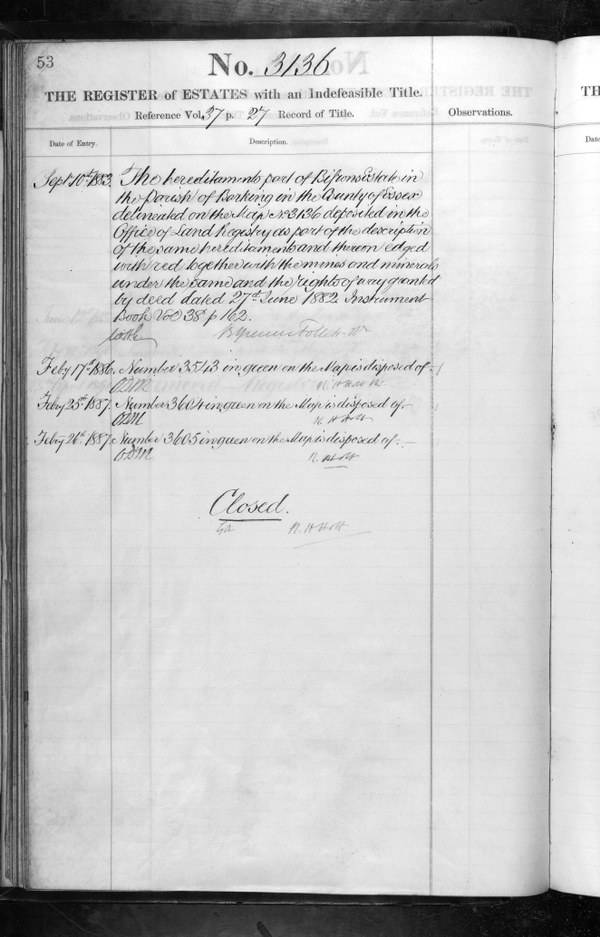 53
No. 3136
THE REGISTER of ESTATES with an Indefeasible Title.
Reference Vol. 37 p. 27 Record of Title.
Observations.
Date of Entry.
Description.
Sept 10th 1883. The hereditaments part of Bifrons Estate in
the Parish of Barking in the County of Essex
delineated on the Map No 3136 deposited in the
Office of Land Registry as part of the description
of the same hereditaments and thereon edged
with red together with the mines and minerals
under the same and the rights of way granted
by deed dated 27th June 1882. Instrument
Book Vol 38 p 162.
Feby 17th 1886. Number 3543 in green on the Map is disposed of.
ODM
Feby 25th 1887. Number 3604 in green on the Map is disposed of.
ODM R. H. Holt
Feby 26th 1887. Number 3605 in green on the Map is disposed of.
ODM R. H. Holt
Closed.
R. H. Holt
TH
Date